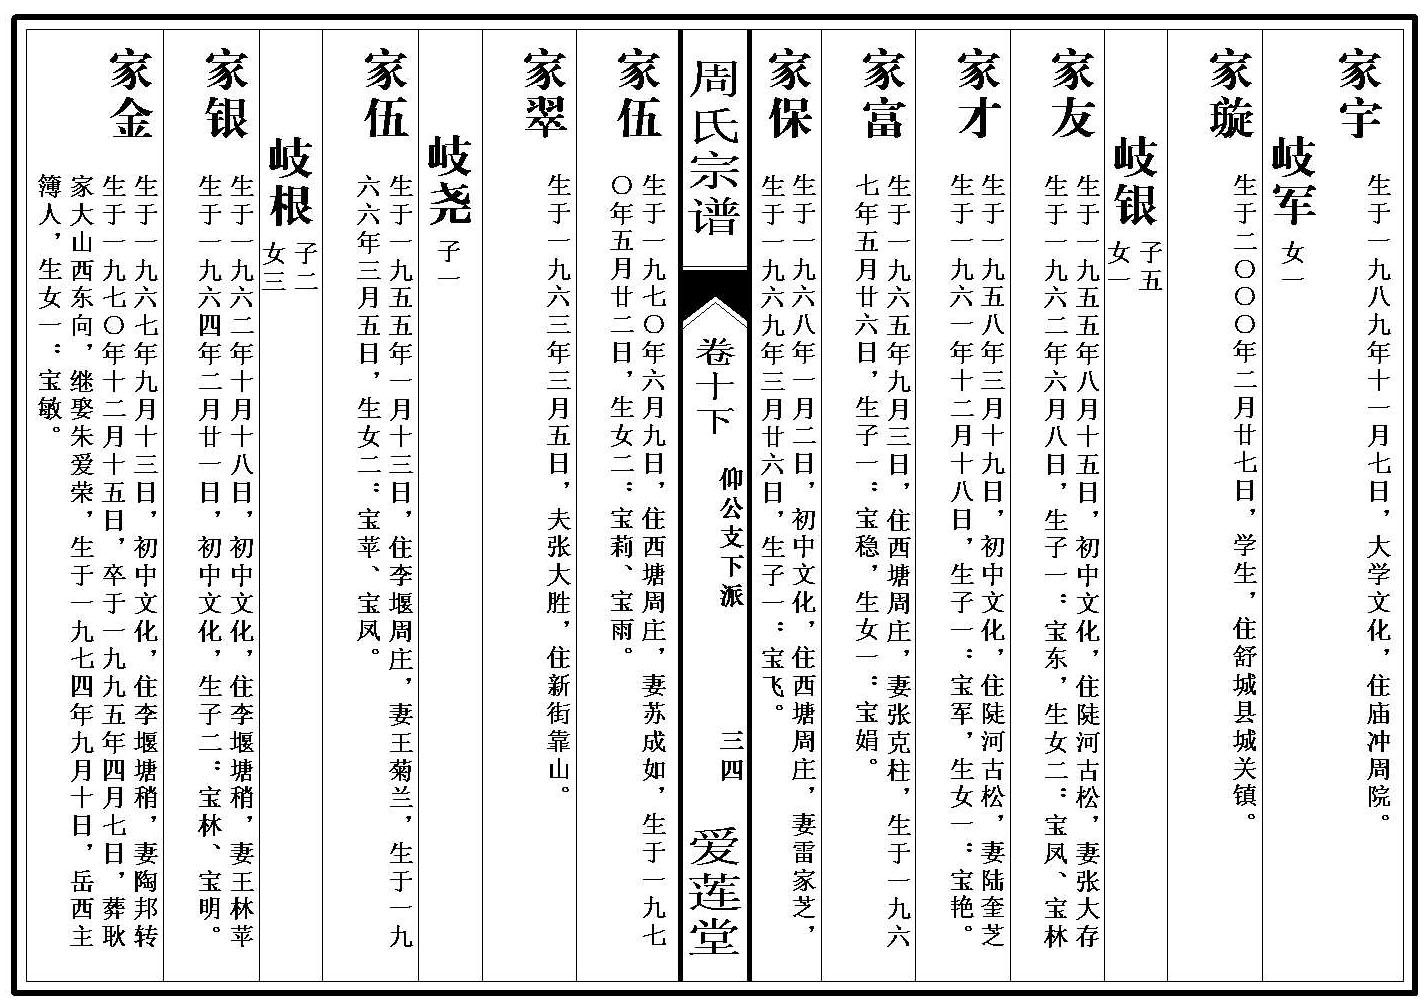 家宇
生于一九八九年十一月七日，大学文化，住庙冲周院。
岐军
女一
家璇
生于二〇〇〇年二月廿七日，学生，住舒城县城关镇。
岐银
子五
女一
家友
生于一九五五年八月十五日，初中文化，住陡河古松，妻张大存
生于一九六二年六月八日，生子一：宝东，生女二：宝凤、宝林
家才
生于一九五八年三月十九日，初中文化，住陡河古松，妻陆奎芝
生于一九六一年十二月十八日，生子一：宝军，生女一：宝艳。
家富
生于一九六五年九月三日，住西塘周庄，妻张克柱，生于一九六
七年五月廿六日，生子一：宝稳，生女一：宝娟。
家保
生于一九六八年一月二日，初中文化，住西塘周庄，妻雷家芝，
生于一九六九年三月廿六日，生子一：宝飞。
周氏宗谱
卷十下
仰公支下派
三四
爱莲堂
家伍
生于一九七〇年六月九日，住西塘周庄，妻苏成如，生于一九七
〇年五月廿二日，生女二：宝莉、宝雨。
家翠
生于一九六三年三月五日，夫张大胜，住新街靠山。
岐尧
子一
家伍
生于一九五五年一月十三日，住李堰周庄，妻王菊兰，生于一九
六六年三月五日，生女二：宝苹、宝凤。
岐根
子二
女三
家银
生于一九六二年十月十八日，初中文化，住李堰塘稍，妻王林苹
生于一九六四年二月廿一日，初中文化，生子二：宝林、宝明。
家金
生于一九六七年九月十三日，初中文化，住李堰塘稍，妻陶邦转
生于一九七〇年十二月十五日，卒于一九九五年四月七日，葬耿
家大山西东向，继娶朱爱荣，生于一九七四年九月十日，岳西主
簿人，生女一：宝敏。